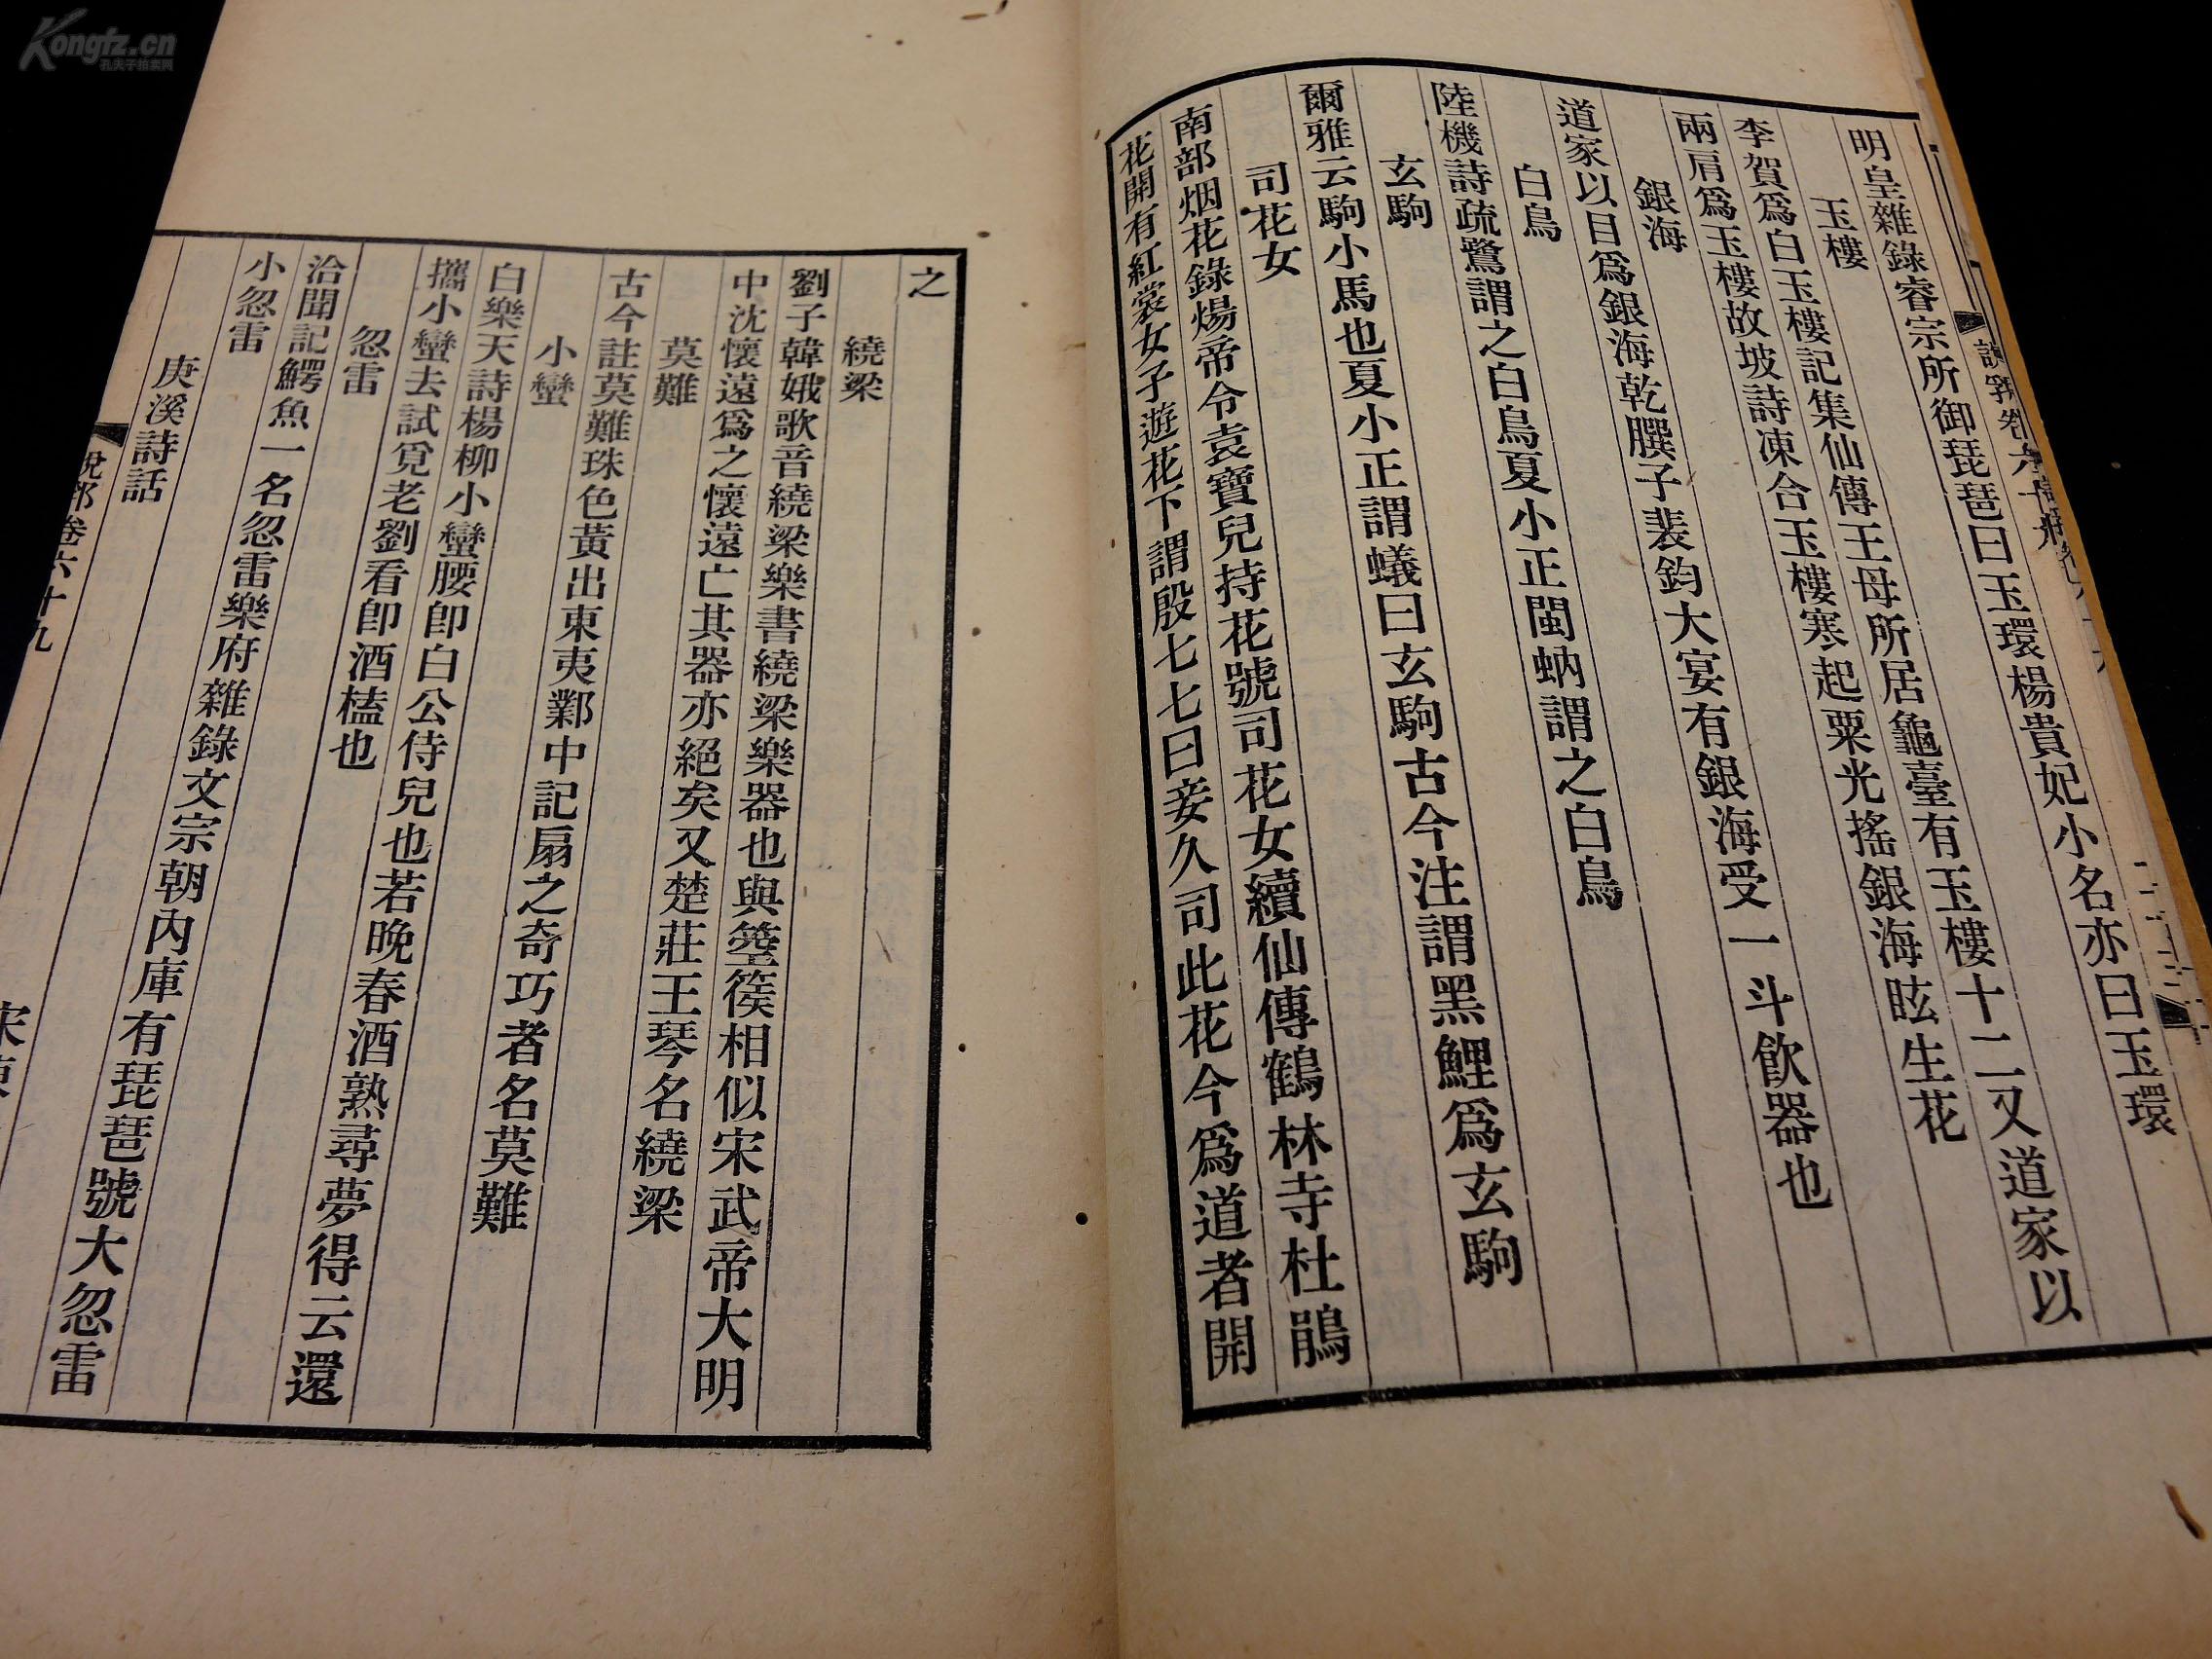 明皇雜錄睿宗所御琵琶曰玉環楊貴妃小名亦曰玉環
玉樓
李賀爲白玉樓記集仙傳王母所居龜臺有玉樓十二又道家以
兩肩爲玉樓故坡詩凍合玉樓寒起粟光搖銀海眩生花
銀海
道家以目爲銀海乾𦠆子裴鈞大宴有銀海受一斗飲器也
白鳥
陸機詩疏鷺謂之白鳥夏小正閩蚋謂之白鳥
玄駒
爾雅云駒小馬也夏小正謂蟻曰玄駒古今注謂黑鯉爲玄駒
司花女
南部烟花錄煬帝令袁寶兒持花號司花女續仙傳鶴林寺杜鵑
花開有紅裳女子遊花下謂殷七七曰妾久司此花今爲道者開
之
繞梁
劉子韓娥歌音繞梁樂書繞梁樂器也與箜篌相似宋武帝大明
中沈懷遠爲之懷遠亡其器亦絕矣又楚莊王琴名繞梁
莫難
古今註莫難珠色黃出東夷鄴中記扇之奇巧者名莫難
小蠻
白樂天詩楊柳小蠻腰卽白公侍兒也若晚春酒熟尋夢得云還
攜小蠻去試覓老劉看卽酒榼也
忽雷
洽聞記鰐魚一名忽雷樂府雜錄文宗朝內庫有琵琶號大忽雷
小忽雷
庚溪詩話
說郛卷六十九
Kongfz.cn
孔夫子拍卖网